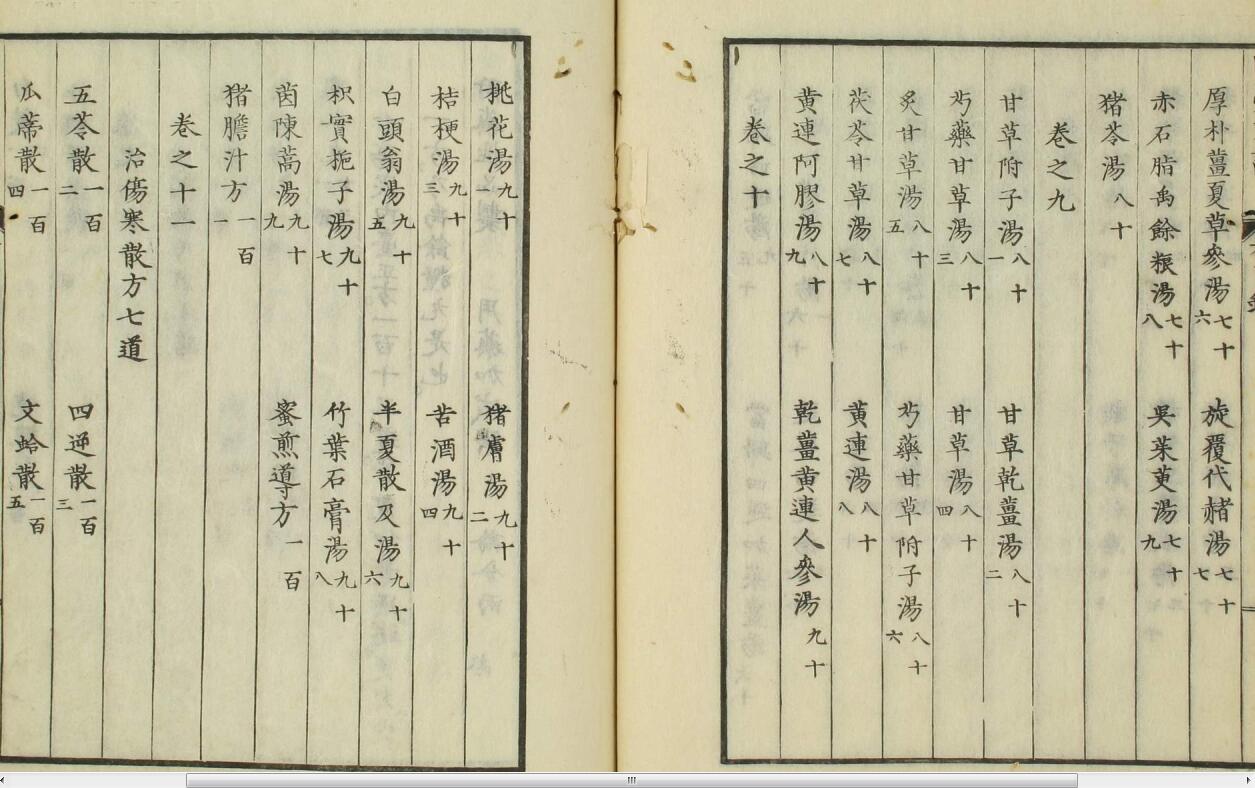 厚朴薑夏草參湯七十六 旋覆代赭湯七十七
赤石脂禹餘粮湯七十八 吳茱萸湯七十九
猪苓湯八十
卷之九
甘草附子湯八十一 甘草乾薑湯八十二
芍藥甘草湯八十三 甘草湯八十四
炙甘草湯八十五 芍藥甘草附子湯八十六
茯苓甘草湯八十七 黃連湯八十八
黃連阿膠湯八十九 乾薑黃連人參湯九十
卷之十
桃花湯九十一 猪膚湯九十二
桔梗湯九十三 苦酒湯九十四
白頭翁湯九十五 半夏散及湯九十六
枳實梔子湯九十七 竹葉石膏湯九十八
茵陳蒿湯九十九 蜜煎導方一百
猪膽汁方一百一
卷之十一
治傷寒散方七道
五苓散一百二 四逆散一百三
瓜蒂散一百四 文蛤散一百五